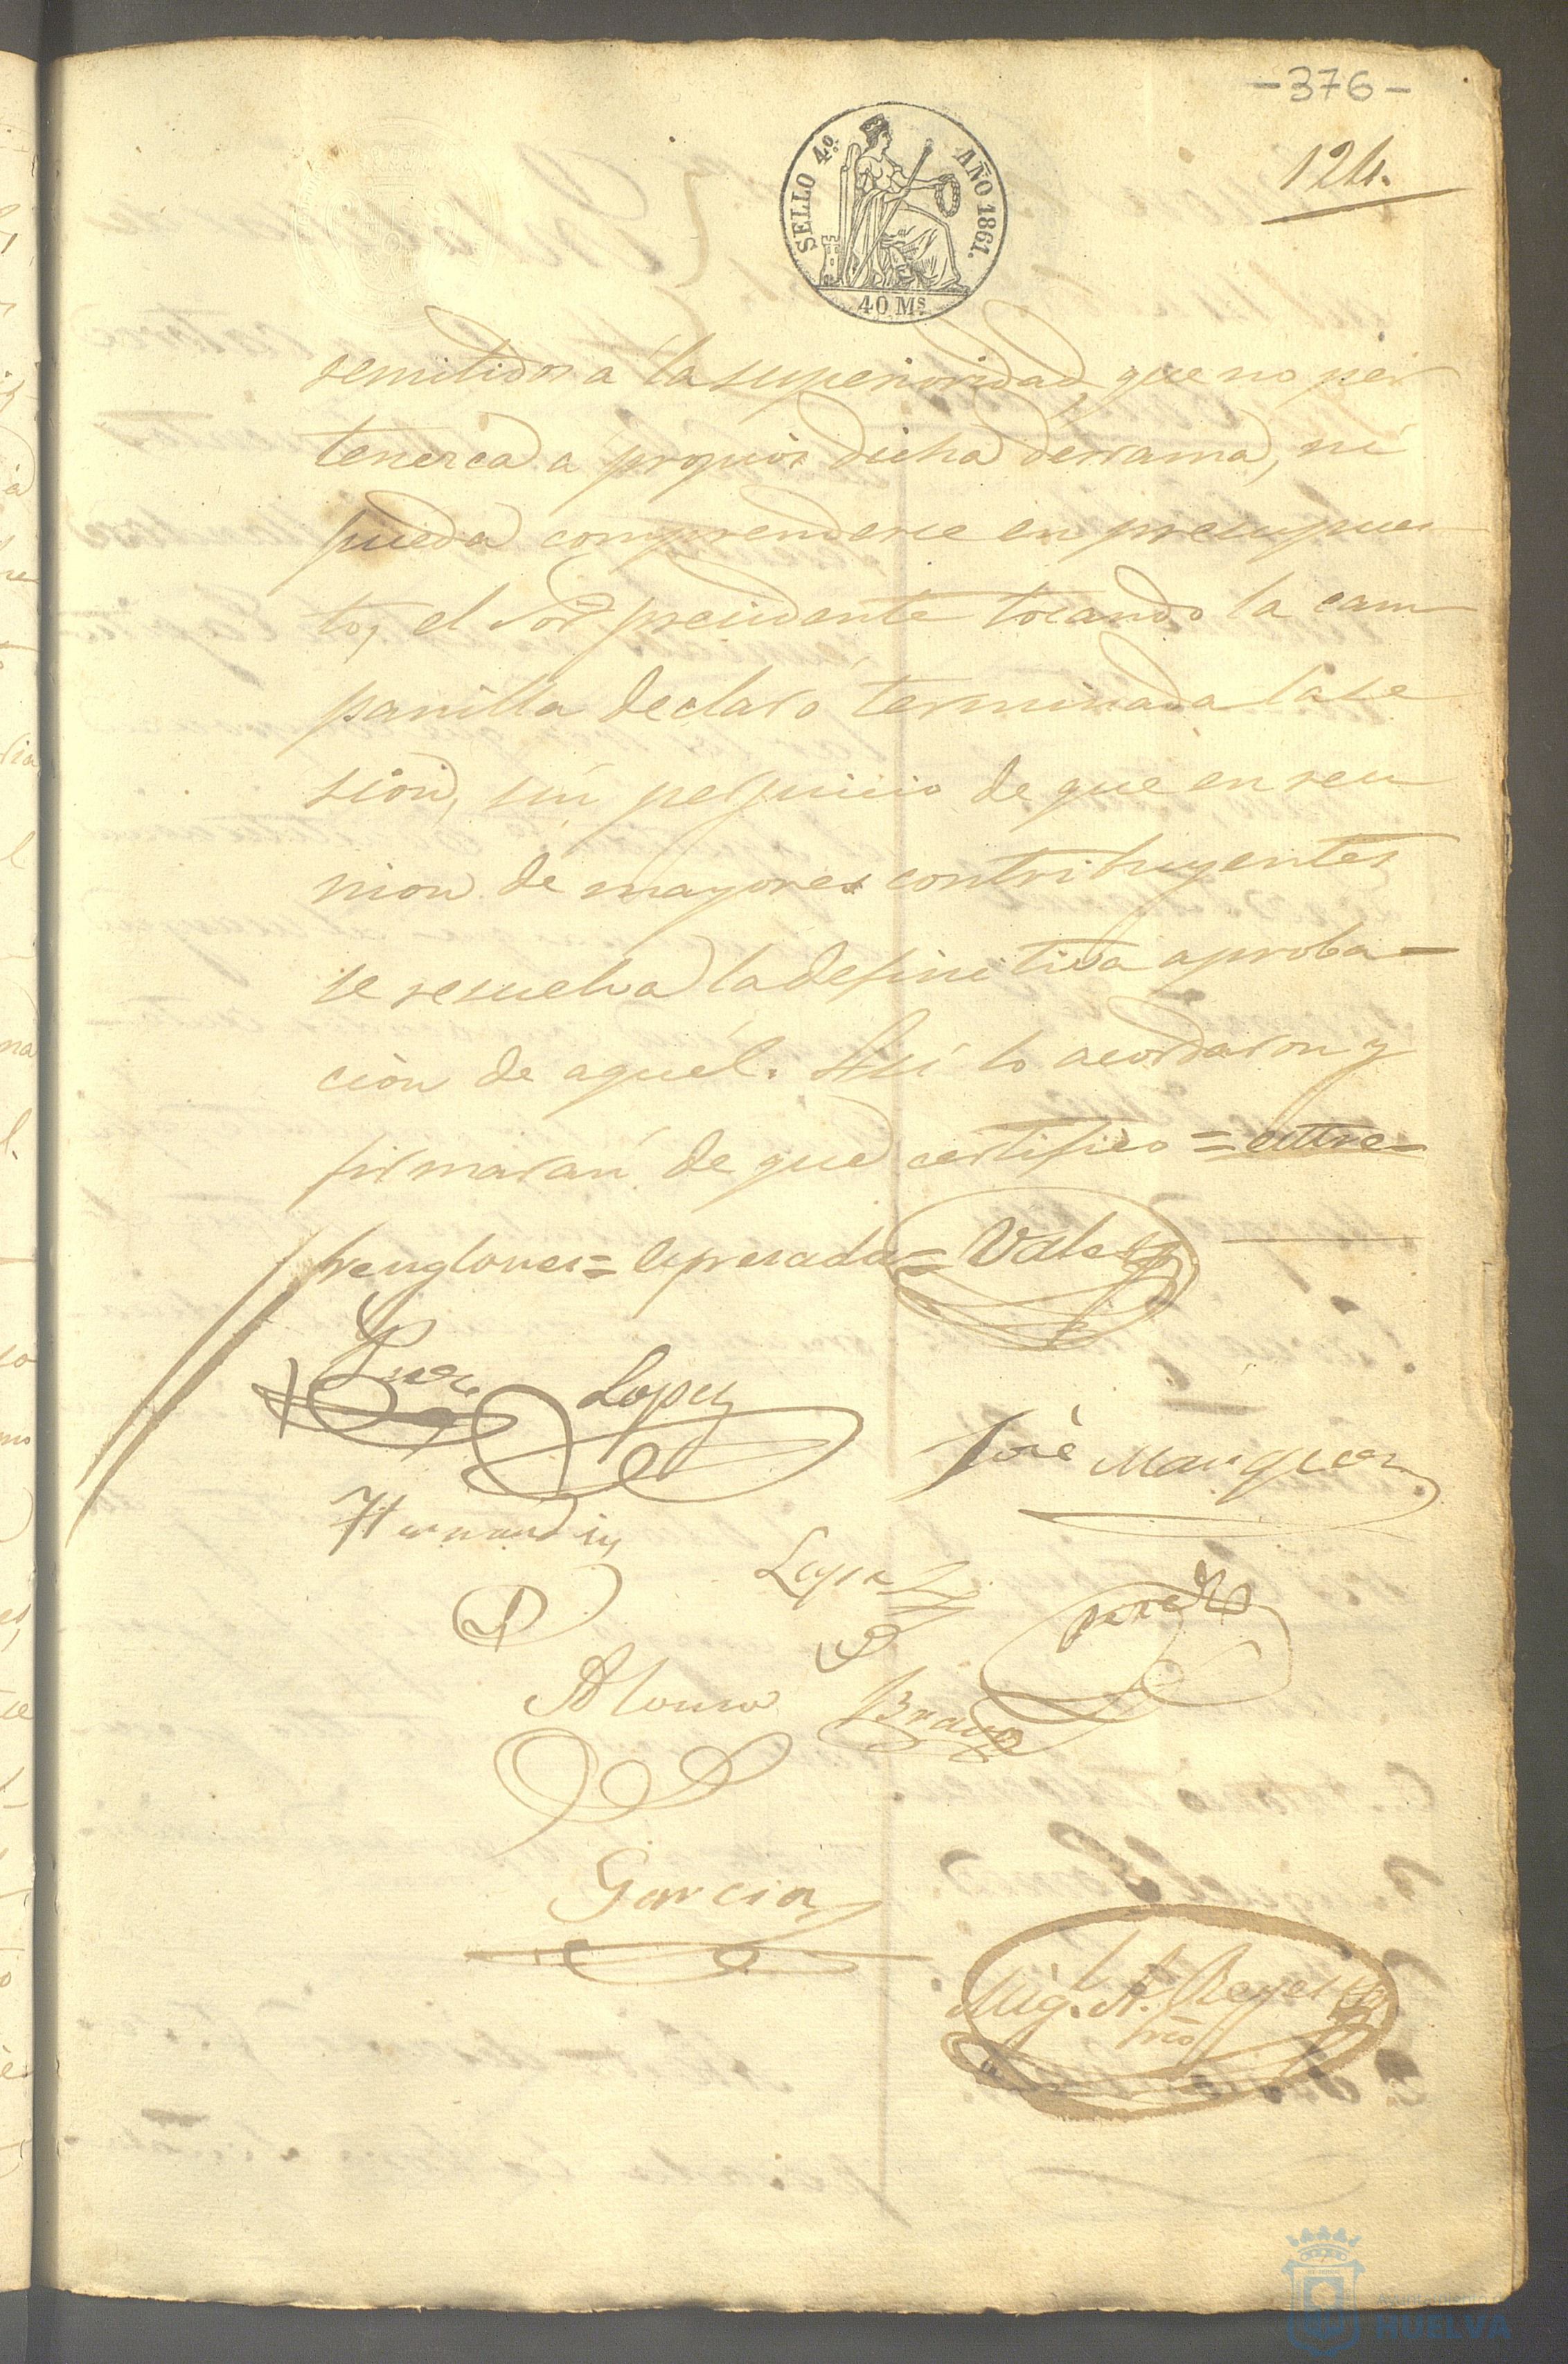 -376-
124.
SELLO 4º. AÑO 1861.
40 Ms.
remitidos a la superioridad, que no per
tenezca a propios dicha derrama, ni
pueda comprenderse en presupues
to, el Sor. presidente tocando la cam
panilla declaró terminada la se
sion, sin perjuicio de que en reu
nion de mayores contribuyentes
se resuelva la definitiva aproba=
cion de aquel. Así lo acordaron y
firmarán de que certifico = entre
renglones = espresada = Vale
Lopez
José Marquez
Hernandez
Lopez
Perez
Alonso
Bravo
Garcia
Mig. A. Reyes
srio
HUELVA